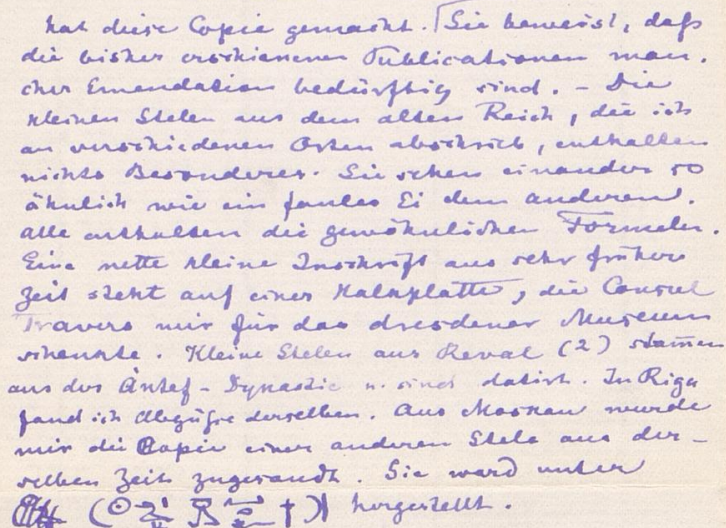 hat diese Copie gemacht. Sie beweist, daß
die bisher erschienenen Publicationen man-
cher Emendation bedürftig sind. – Die
kleinen Stelen aus dem alten Reich, die ich
an verschiedenen Orten abschrieb, enthalten
nichts Besonderes. Sie sehen einander so
ähnlich wie ein faules Ei dem anderen.
Alle enthalten die gewöhnlichen Formeln.
Eine nette kleine Inschrift aus sehr früher
Zeit steht auf einer Kalkplatte, die Consul
Travers mir für das dresdener Museum
schenkte. Kleine Stelen aus Reval (2) stam̄en
aus der Antef-Dynastie u. sind datirt. In Riga
fand ich Abgüsse derselben. Aus Moskau wurde
mir die Copie einer anderen Stele aus der-
selben Zeit zugesandt. Sie ward unter
hergestellt.